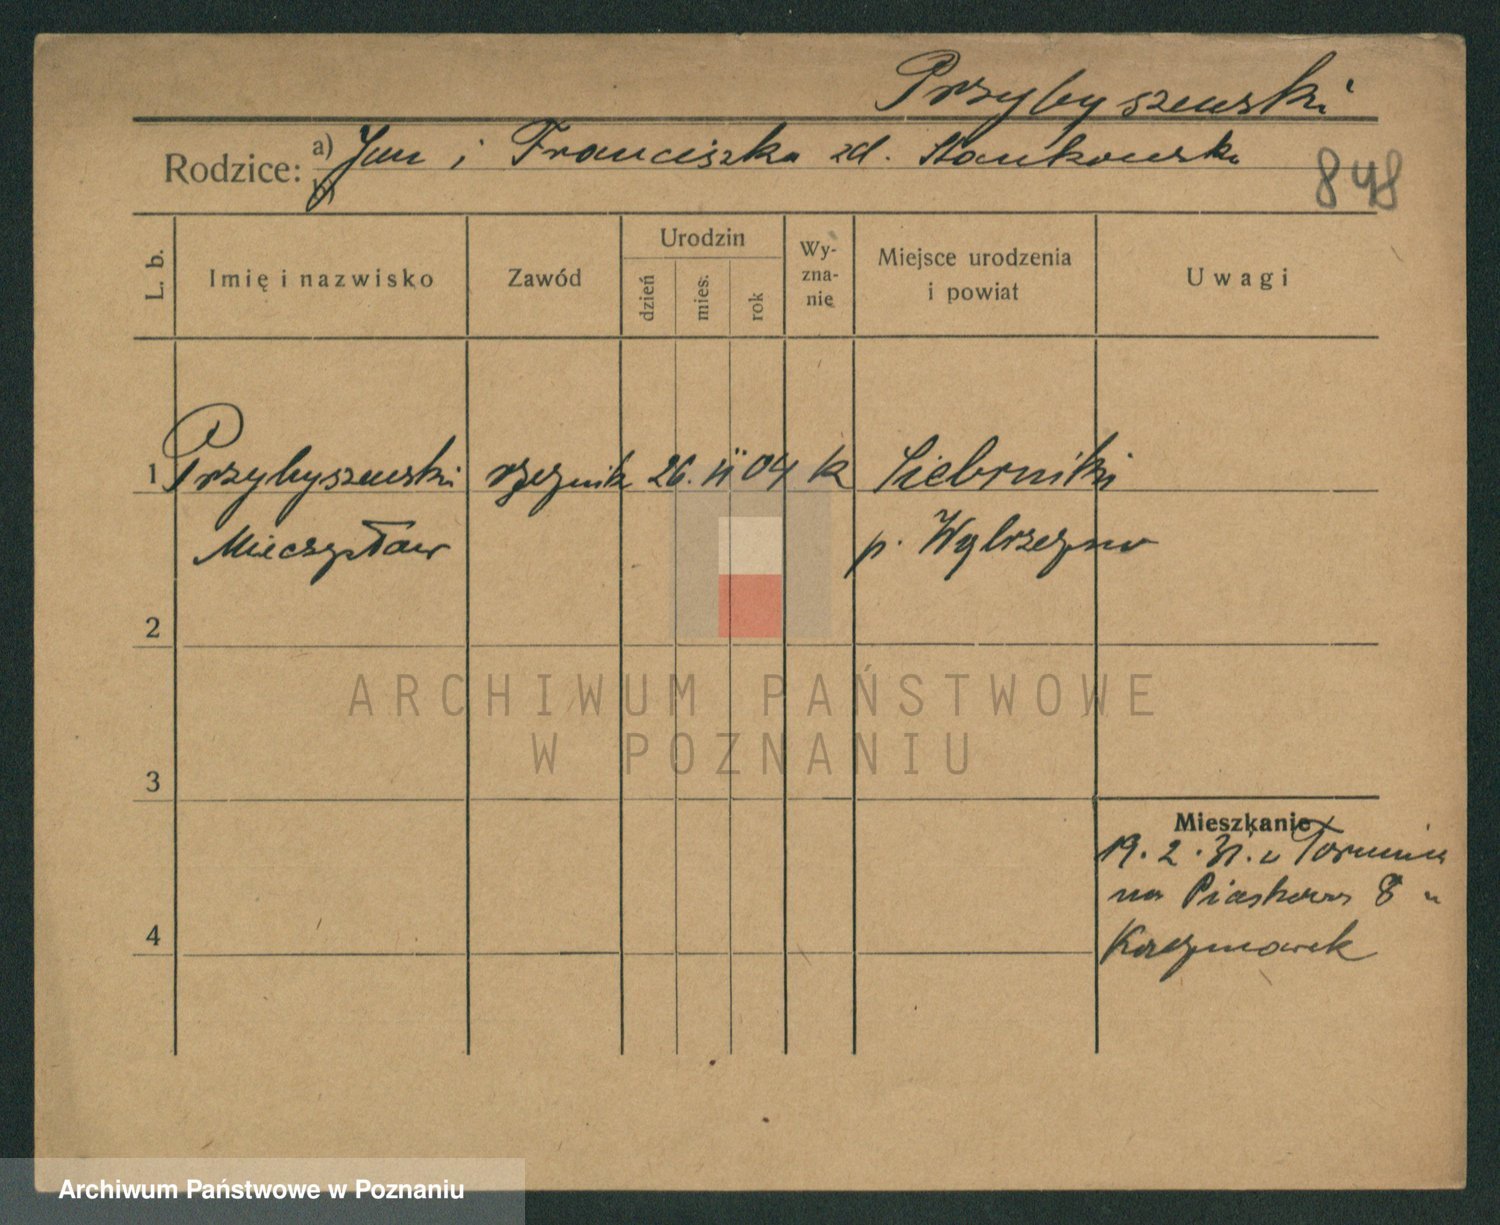 Przybyszewski
Rodzice: a) Jan i Franciszka zd. Stankowska
b)
848
L. b.
Imię i nazwisko
Zawód
Urodzin
dzień
mies.
rok
Wy-
zna-
nie
Miejsce urodzenia
i powiat
Uwagi
1 Przybyszewski rzeźnik 26. II 04 k Siebrniki
Mieczysław p. Wąbrzeźno
2
3
4
Mieszkanie
19. 2. 31. z Torunia
na Piaskowa 8 u
Kaczmarek
ARCHIWUM PAŃSTWOWE
W POZNANIU
Archiwum Państwowe w Poznaniu